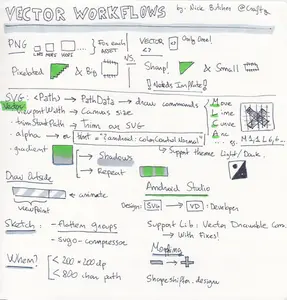 VECTOR WORKFLOWS
by. Nick Butcher @Crafty
PNG
LDPI MDPI HDPI } For each Asset
VS.
VECTOR <> Only One!
Pixelated & Big
Sharp! & Small
! Needs Inflate!
SVG: <Path> → PathData → draw commands
Vector
Move
Line
Curve
Arc
viewportWidth → Canvas size
trimStartPath → Trim our SVG
e.g. M 3,4 L 6,6...
alpha → or tint = "?android:colorControlNormal"
Support theme Light/Dark
gradient → Shadows
→ Repeat
Draw Outside
← animate
viewpoint
Android Studio
Designer: SVG → VD : Developer
Sketch: - flatten groups
- svgo - compressor
Support Lib: Vector Drawable Com.
→ With Fixes!
When? < 200 x 200 dp
< 800 char path
Morphing
Shapeshifter.design